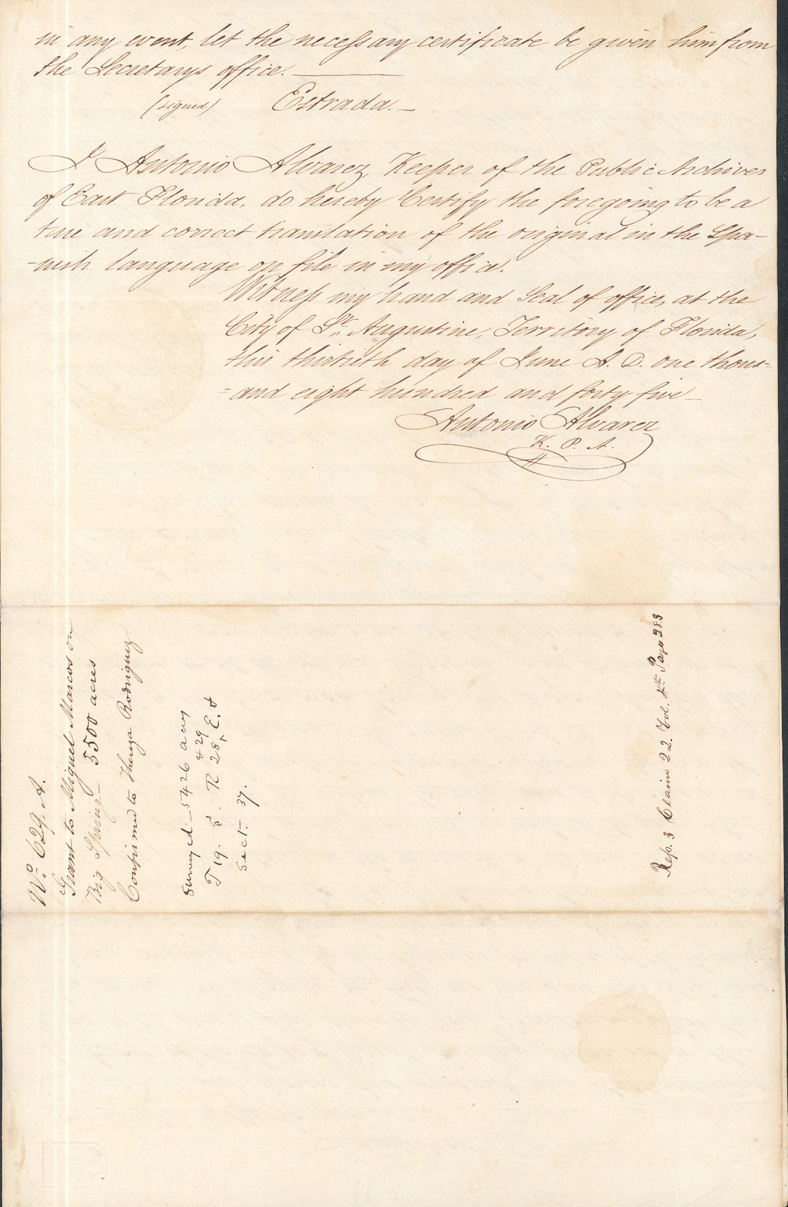 in any event, let the necessary certificate be given him from
the Secretarys office.
(signed) Estrada.
I Antonio Alvarez, Keeper of the Public Archives
of East Florida, do hereby Certify the foregoing to be a
true and correct translation of the original in the Spa-
-nish language on file in my office.
Witness my hand and Seal of office, at the
City of St. Augustine, Territory of Florida,
this thirtieth day of June A. D. one thous-
=and eight hundred and forty five
Antonio Alvarez
K. P. A.
No. 629. A.
Grant to Miguel Marcos on
Big Spring 5500 acres
Confirmed to Theresa Rodriguez
Surveyed - 5426 acres
T 19. S. R 28, & 29 E.
Sect- 37.
Rep. 3 Claim 22. Vol. 4th Page 283